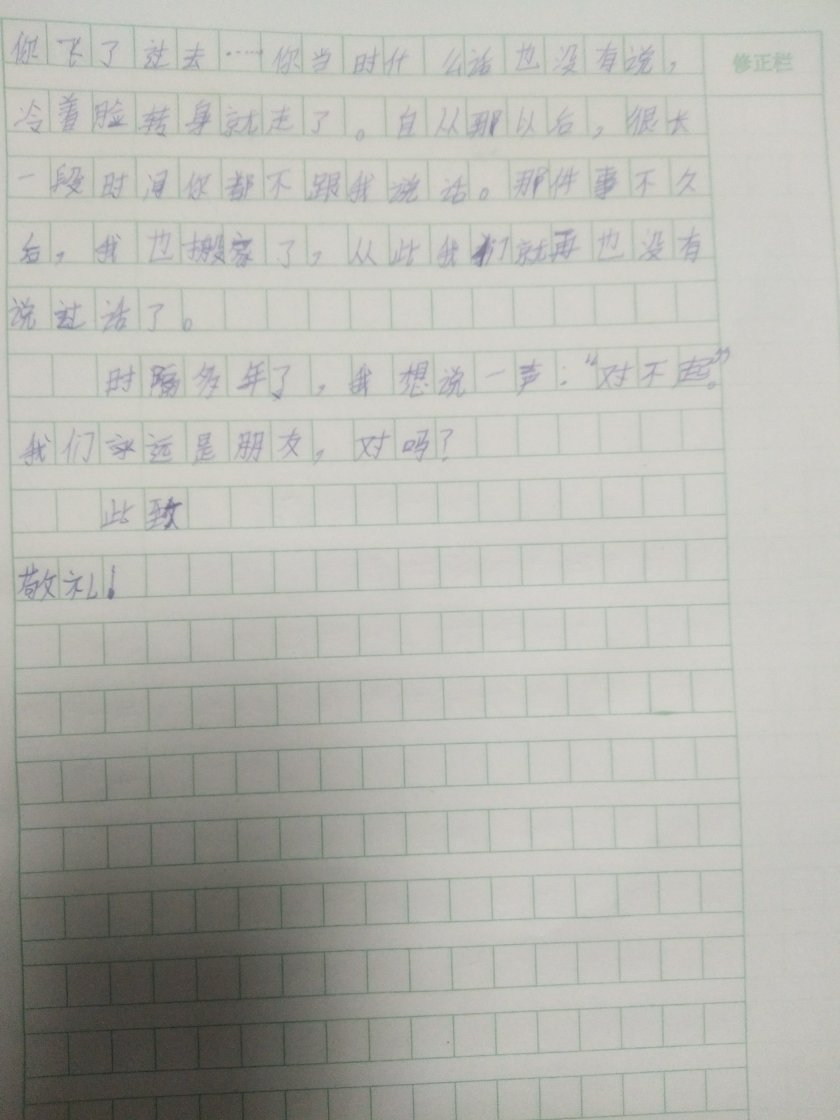 你飞了过去……你当时什么话也没有说，
修正栏
冷着脸转身就走了。自从那以后，很长
一段时间你都不跟我说话。那件事不久
后，我也搬家了，从此我们就再也没有
说过话了。
时隔多年了，我想说一声：“对不起”。
我们永远是朋友，对吗？
此致
敬礼！